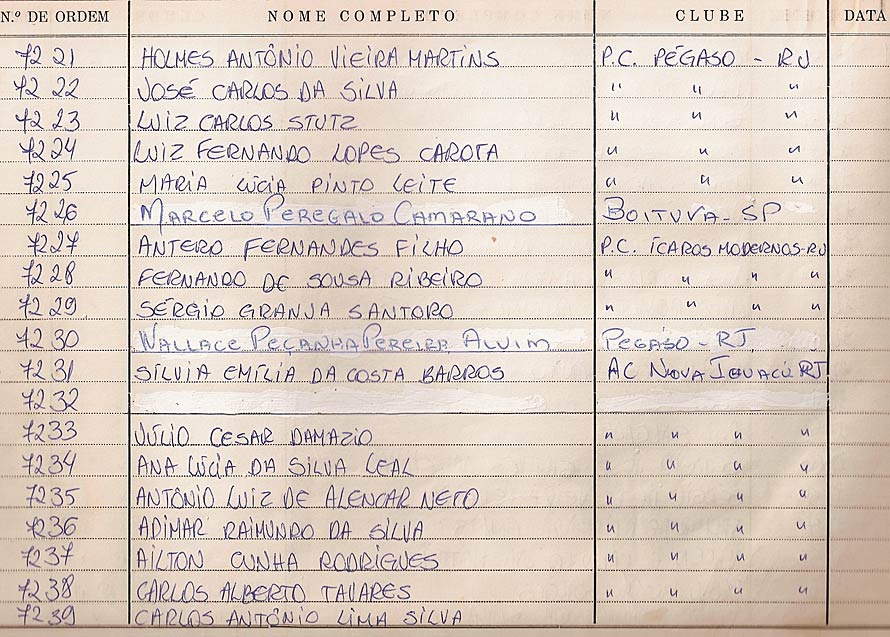 N.º DE ORDEM NOME COMPLETO CLUBE DATA
7221 HOLMES ANTÔNIO VIEIRA MARTINS P.C. PÉGASO - RJ
7222 JOSÉ CARLOS DA SILVA " " "
7223 LUIZ CARLOS STUTZ " " "
7224 LUIZ FERNANDO LOPES CAROTA " " "
7225 MARIA LÚCIA PINTO LEITE " " "
7226 MARCELO PEREGALO CAMARANO BOITUVA - SP
7227 ANTERO FERNANDES FILHO P.C. ÍCAROS MODERNOS-RJ
7228 FERNANDO DE SOUSA RIBEIRO " " " "
7229 SÉRGIO GRANJA SANTORO " " " "
7230 WALLACE PEÇANHA PEREIRA ALVIM PEGASO - RJ
7231 SÍLVIA EMÍLIA DA COSTA BARROS AC NOVA IGUACÚ RJ
7232
7233 JÚLIO CESAR DAMAZIO " " " "
7234 ANA LÚCIA DA SILVA LEAL " " " "
7235 ANTÔNIO LUIZ DE ALENCAR NETO " " " "
7236 ADIMAR RAIMUNDO DA SILVA " " " "
7237 AILTON CUNHA RODRIGUES " " " "
7238 CARLOS ALBERTO TAVARES " " " "
7239 CARLOS ANTÔNIO LIMA SILVA